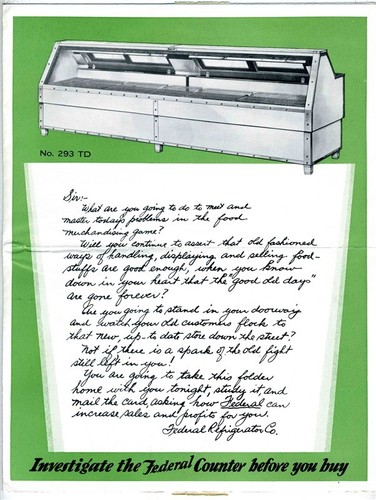 No. 293 TD
Sir:-
What are you going to do to meet and
master todays problems in the food
merchandising game?
Will you continue to assert that old fashioned
ways of handling, displaying and selling food-
stuffs are good enough, when you know
down in your heart that the "good old days"
are gone forever?
Are you going to stand in your doorway
and watch your old customers flock to
that new, up-to date store down the street?
Not if there is a spark of the old fight
still left in you!
You are going to take this folder
home with you tonight, study it, and
mail the card, asking how Federal can
increase sales and profits for you.
Federal Refrigerator Co.
Investigate the Federal Counter before you buy